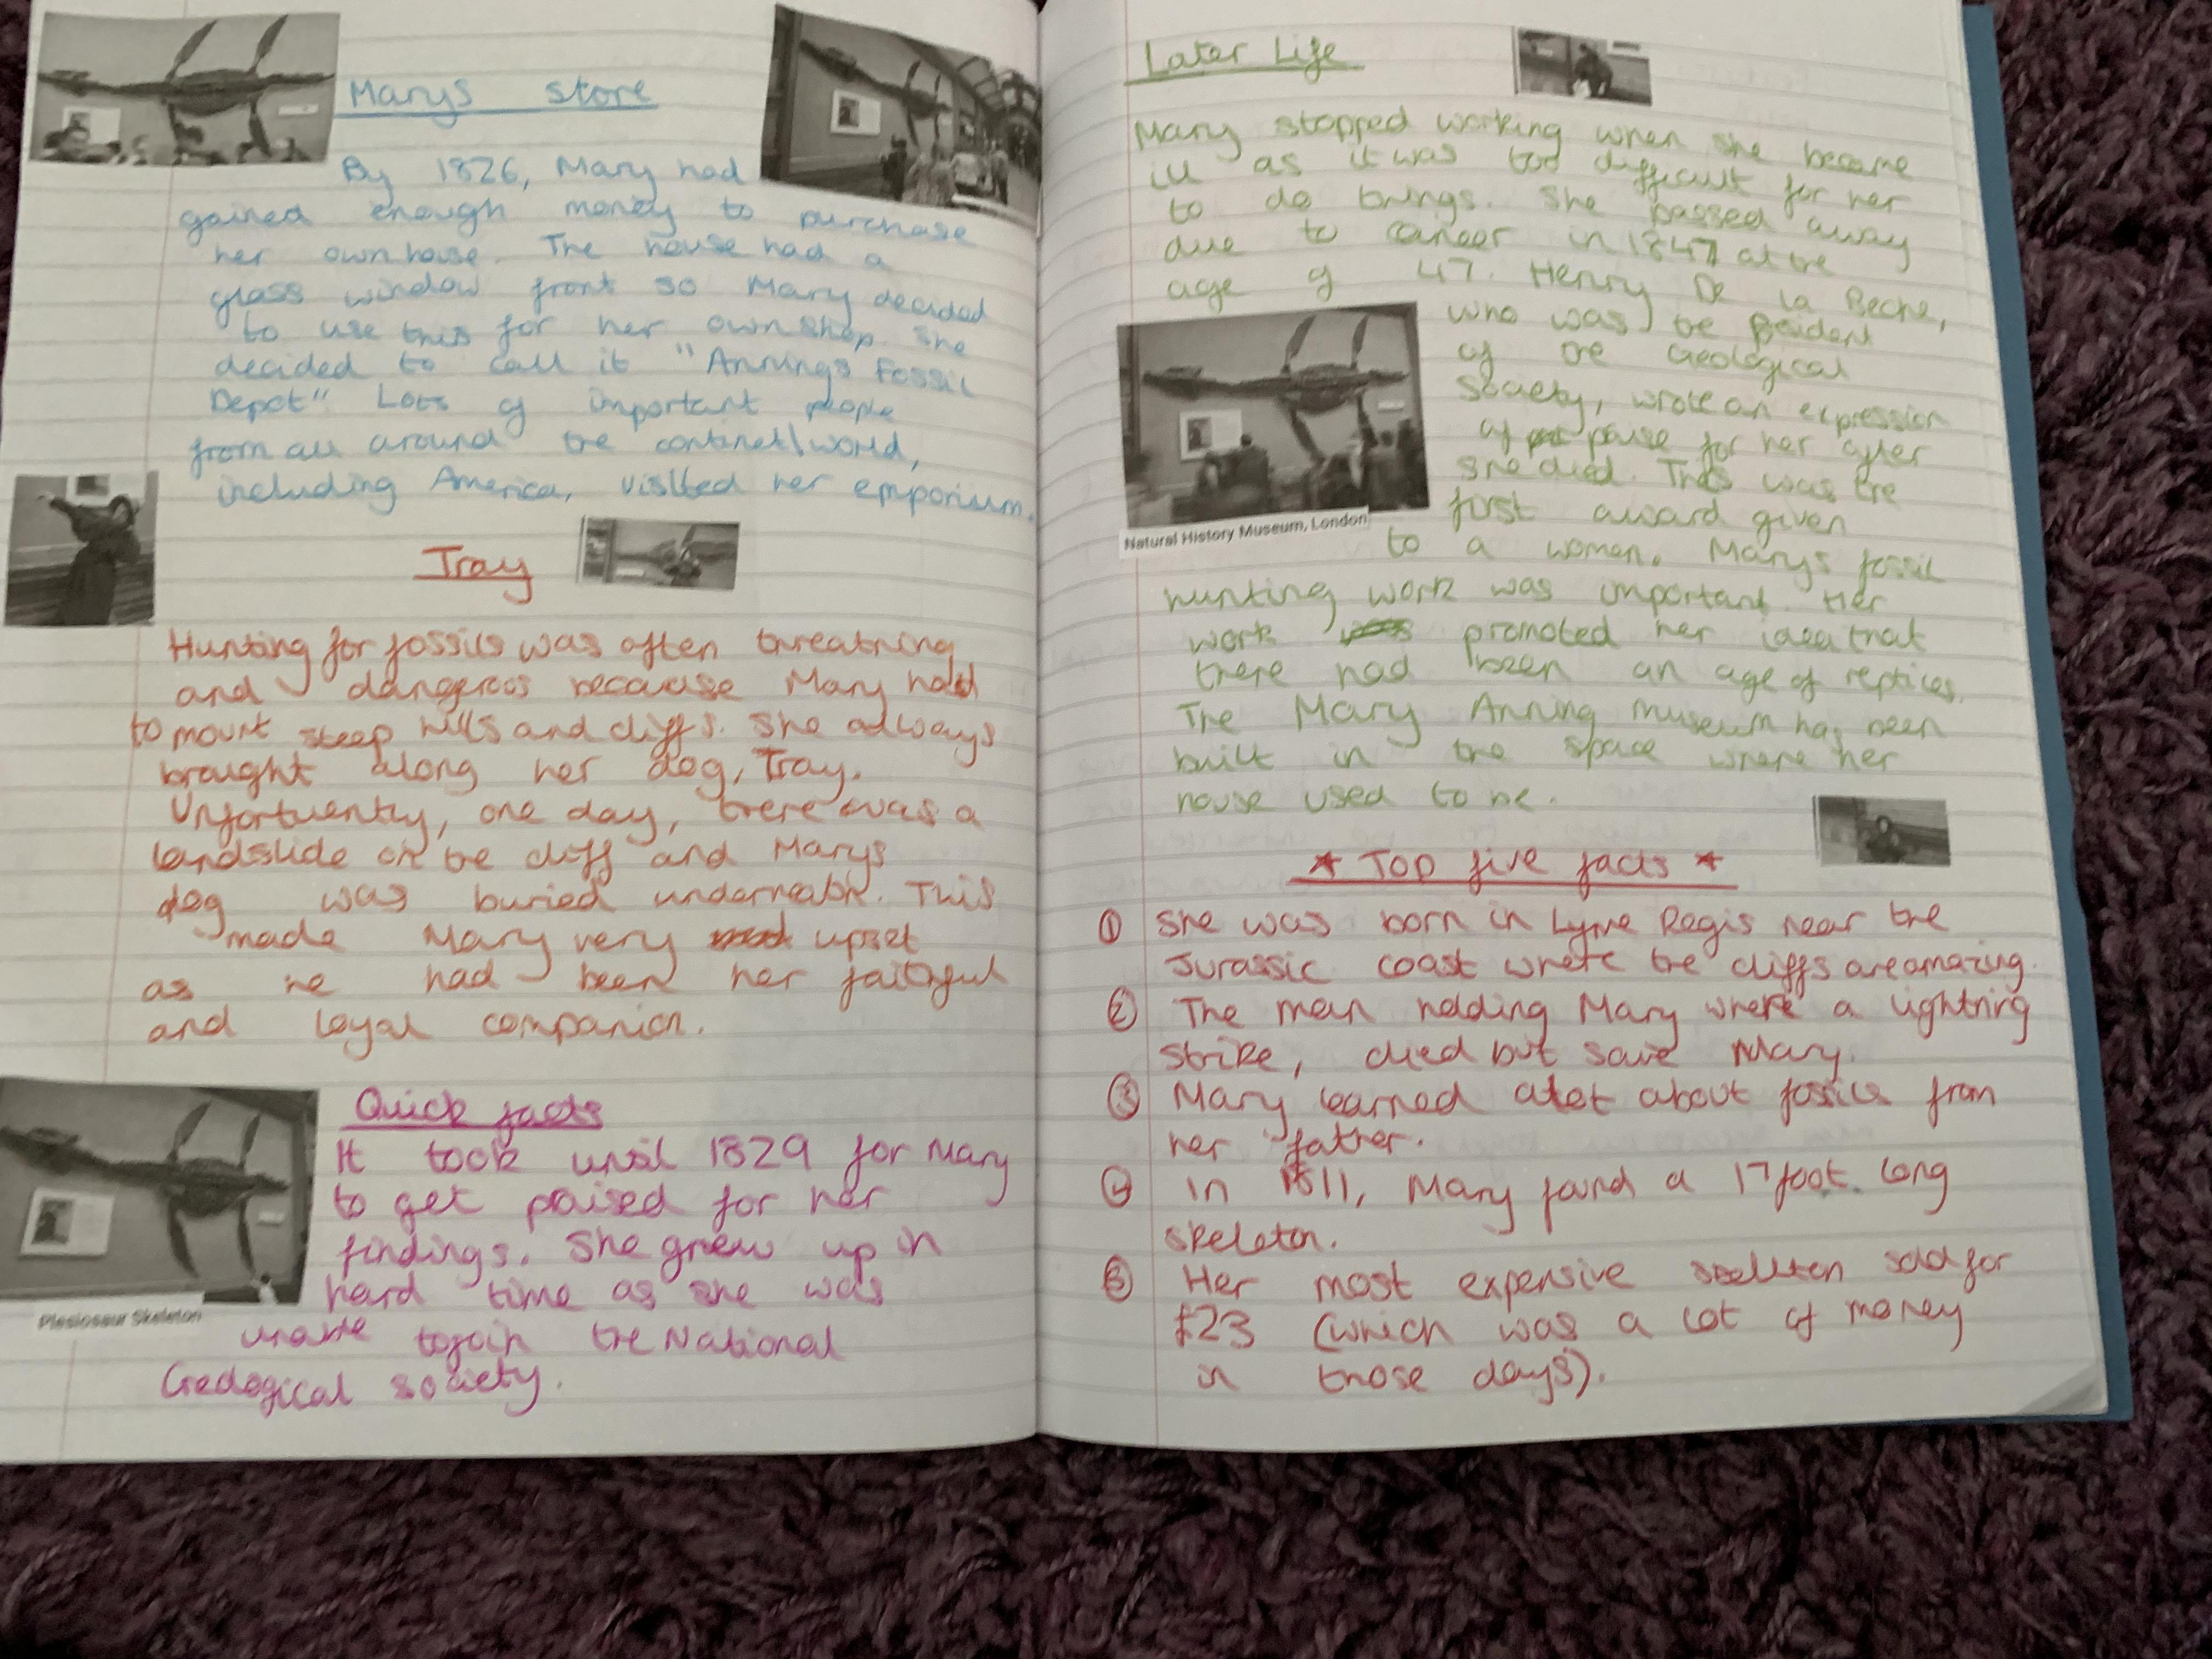 Marys store
By 1826, Mary had
gained enough money to purchase
her own house. The house had a
glass window front so Mary decided
to use this for her own shop. She
decided to call it "Annings Fossil
Depot". Lots of important people
from all around the continet/world,
including America, visited her emporium.
Tray
Hunting for fossils was often threatning
and dangeros because Mary had
to mount steep hills and cliffs. She always
brought along her dog, Tray.
Unfortuently, one day, there was a
landslide on the cliff and Marys
dog was buried underneath. This
made Mary very upset
as he had been her faithful
and loyal companion.
Quick facts
It took until 1829 for Mary
to get praised for her
findings. She grew up in
hard time as she was
unable to join the National
Geological society.
Plesiosaur Skeleton
Later Life
Mary stopped working when she became
ill as it was too difficult for her
to do things. She passed away
due to cancer in 1847 at the
age of 47. Henry De la Beche,
who was the
of the Geological
Society, wrote an expression
of for her after
she died. This was the
first award given
to a women. Marys fossil
hunting work was important. Her
work promoted her idea that
there had been an age of reptiles.
The Mary Anning museum has been
built in the space where her
house used to be.
Natural History Museum, London
* Top five facts *
① She was born in Lyme Regis near the
Jurassic coast where the cliffs are amazing.
② The men holding Mary where a lightning
strike, died but save Mary.
③ Mary learned alot about fossils from
her father.
④ In 1811, Mary found a 17 foot long
skeleton.
⑤ Her most expensive skelleton sold for
£23 (which was a lot of money
in those days).